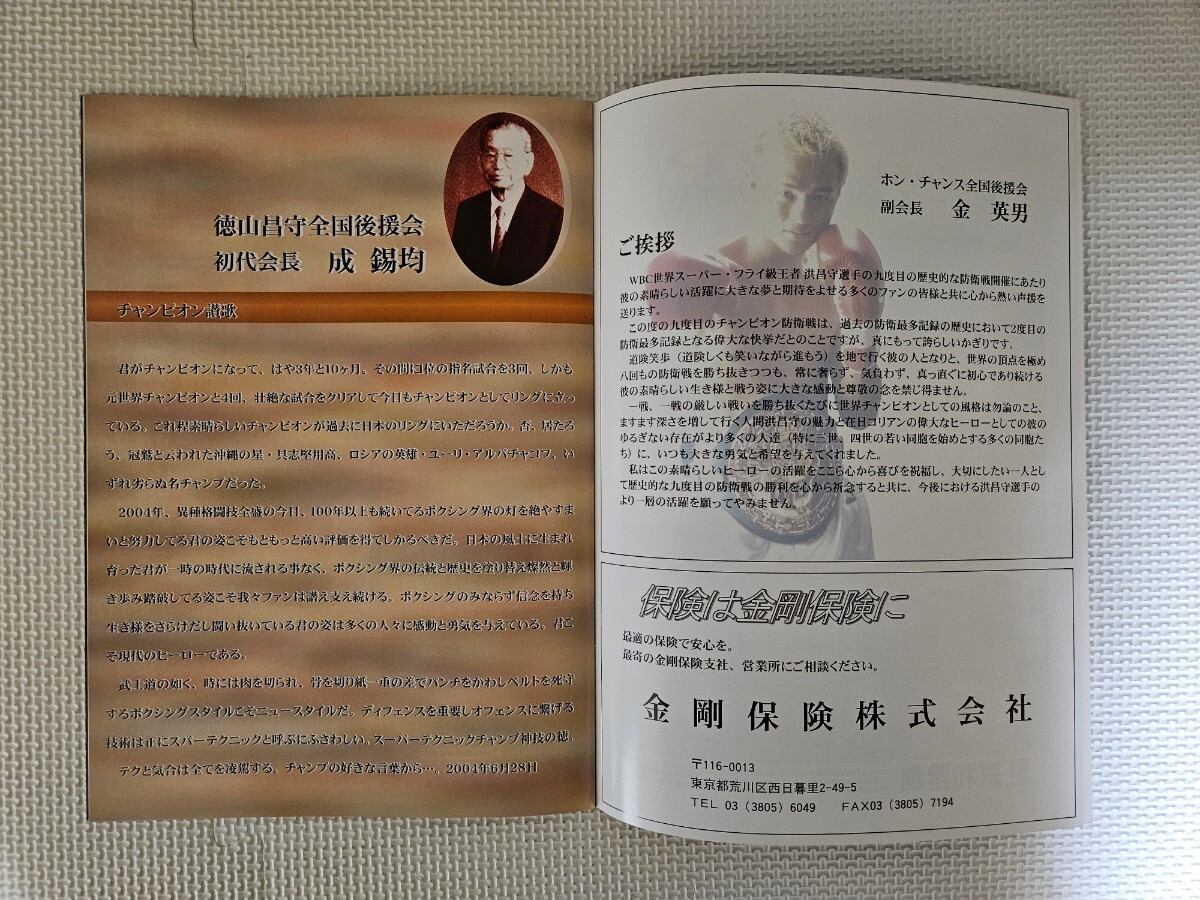 徳山昌守全国後援会
初代会長 成 錫均
チャンピオン讃歌
君がチャンピオンになって、はや3年と10ヶ月。その間に1位の指名試合を3回、しかも
元世界チャンピオンと4回、壮絶な試合をクリアして今日もチャンピオンとしてリングに立っ
ている。これ程素晴らしいチャンピオンが過去に日本のリングにいただろうか。否、居たろ
う、冠鷲と云われた沖縄の星・具志堅用高、ロシアの英雄・ユーリ・アルバチャコフ、い
ずれ劣らぬ名チャンプだった。
2004年、異種格闘技全盛の今日、100年以上も続いてるボクシング界の灯を絶やすま
いと努力してる君の姿こそもともっと高い評価を得てしかるべきだ。日本の風土に生まれ
育った君が一時の時代に流される事なく、ボクシング界の伝統と歴史を塗り替え燦然と輝
き歩み踏破してる姿こそ我々ファンは讃え支え続ける。ボクシングのみならず信念を持ち
生き様をさらけだし闘い抜いている君の姿は多くの人々に感動と勇気を与えている。君こ
そ現代のヒーローである。
武士道の如く、時には肉を切られ、骨を切り紙一重の差でパンチをかわしベルトを死守
するボクシングスタイルこそニュースタイルだ。ディフェンスを重要しオフェンスに繋げる
技術は正にスパーテクニックと呼ぶにふさわしい。スーパーテクニックチャンプ神技の徳。
テクと気合は全てを凌駕する。チャンプの好きな言葉から…。2004年6月28日
ホン・チャンス全国後援会
副会長 金 英男
ご挨拶
WBC世界スーパー・フライ級王者 洪昌守選手の九度目の歴史的な防衛戦開催にあたり
彼の素晴らしい活躍に大きな夢と期待をよせる多くのファンの皆様と共に心から熱い声援を
送ります。
この度の九度目のチャンピオン防衛戦は、過去の防衛最多記録の歴史において2度目の
防衛最多記録となる偉大な快挙だとのことですが、真にもって誇らしいかぎりです。
道険笑歩（道険しくも笑いながら進もう）を地で行く彼の人となりと、世界の頂点を極め
八回もの防衛戦を勝ち抜きつつも、常に奢らず、気負わず、真っ直ぐに初心であり続ける
彼の素晴らしい生き様と戦う姿に大きな感動と尊敬の念を禁じ得ません。
一戦、一戦の厳しい戦いを勝ち抜くたびに世界チャンピオンとしての風格は勿論のこと、
ますます深さを増して行く人間洪昌守の魅力と在日コリアンの偉大なヒーローとしての彼の
ゆるぎない存在がより多くの人達（特に三世、四世の若い同胞を始めとする多くの同胞た
ち）に、いつも大きな勇気と希望を与えてくれました。
私はこの素晴らしいヒーローの活躍をここら心から喜びを祝福し、大切にしたい一人とし
て歴史的な九度目の防衛戦の勝利を心から祈念すると共に、今後における洪昌守選手の
より一層の活躍を願ってやみません。
保険は金剛保険に
最適の保険で安心を。
最寄の金剛保険支社、営業所にご相談ください。
金剛保険株式会社
〒116-0013
東京都荒川区西日暮里2-49-5
TEL 03（3805）6049 FAX03（3805）7194